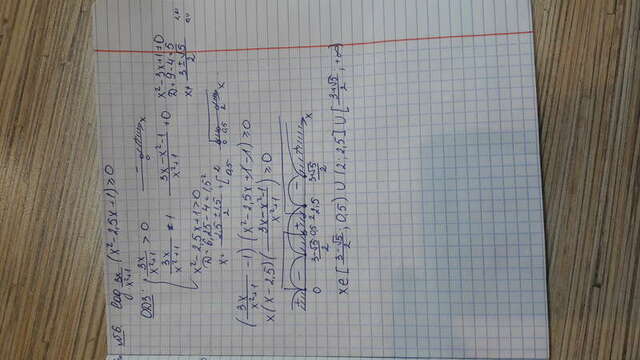 №6 log 3x/(x²+1) (x²-2,5x+1) ≥ 0
ОДЗ: 3x/(x²+1) > 0
0 x
3x/(x²+1) ≠ 1 (3x-x²-1)/(x²+1) ≠ 0 x²-3x+1≠0
D=9-4=5
x≠ (3±√5)/2
x²-2,5x+1>0
D=6,25-4=1,5²
x= (2,5±1,5)/2 = [2 0,5
0 0,5 2 x
(3x/(x²+1) -1) (x²-2,5x+1-1) ≥ 0
x(x-2,5)((3x-x²-1)/(x²+1)) ≥ 0
0 (3-√5)/2 0,5 2 2,5 (3+√5)/2 x
x∈[(3-√5)/2; 0,5) ∪ (2; 2,5] ∪ [(3+√5)/2; +∞)